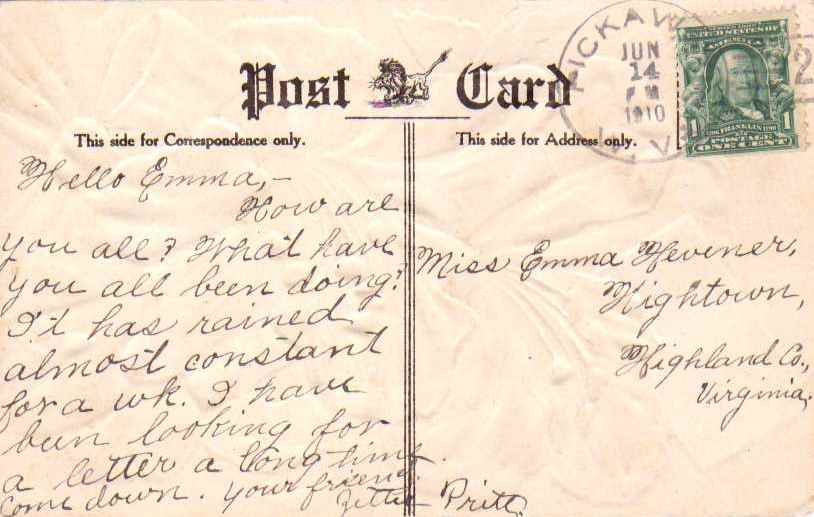 Post Card
This side for Correspondence only.
This side for Address only.
PICKAWAY
JUN
14
P M
1910
W. VA.
2
UNITED STATES OF
AMERICA
1
FRANKLIN
1
POSTAGE
ONE CENT
Hello Emma,-
How are
you all? What have
you all been doing?
It has rained
almost constant
for a wk. I have
been looking for
a letter a long time.
Come down. Your friend.
Zettie Pritt.
Miss Emma Hevener,
Hightown,
Highland Co.,
Virginia.